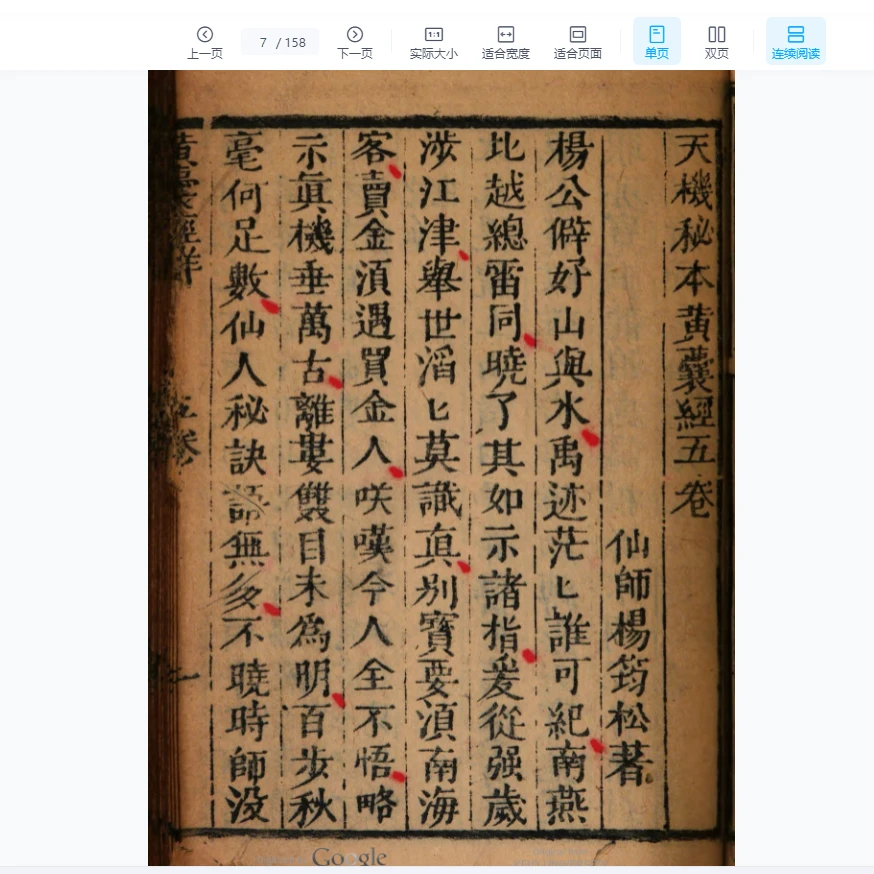 上一页
7 / 158
下一页
实际大小
适合宽度
适合页面
单页
双页
连续阅读
天機秘本黄囊經五卷
仙師楊筠松著
楊公僻好山與水禹迹茫匕誰可紀南燕
北越總雷同曉了其如示諸指爰從强歲
涉江津舉世滔匕莫識真别寳要湏南海
客賣金湏遇買金人咲嘆今人全不悟略
示眞機垂萬古離婁雙目未爲明百步秋
毫何足數仙人秘訣語無多不曉時師没
Google